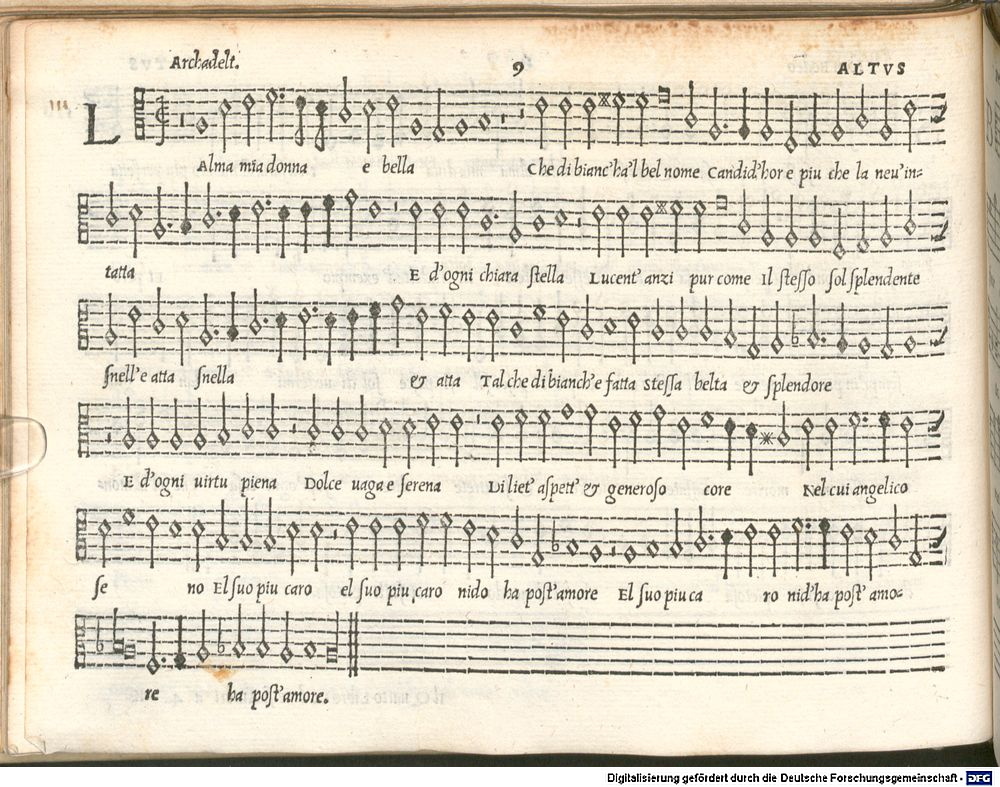 Archadelt. 9 ALTVS
L
Alma mia donna e bella Che di bianc'ha'l bel nome Candid'hor e piu che la neu'in-
tatta E d'ogni chiara stella Lucent' anzi pur come Il stesso sol splendente
snell'e atta snella & atta Tal che di bianch'e fatta stessa belta & splendore
E d'ogni uirtu piena Dolce uaga e serena Di liet' aspett' & generoso core Nel cui angelico
se no El suo piu caro el suo piu caro nido ha post'amore El suo piu ca ro nid'ha post' amo-
re ha post'amore.
Digitalisierung gefördert durch die Deutsche Forschungsgemeinschaft - DFG